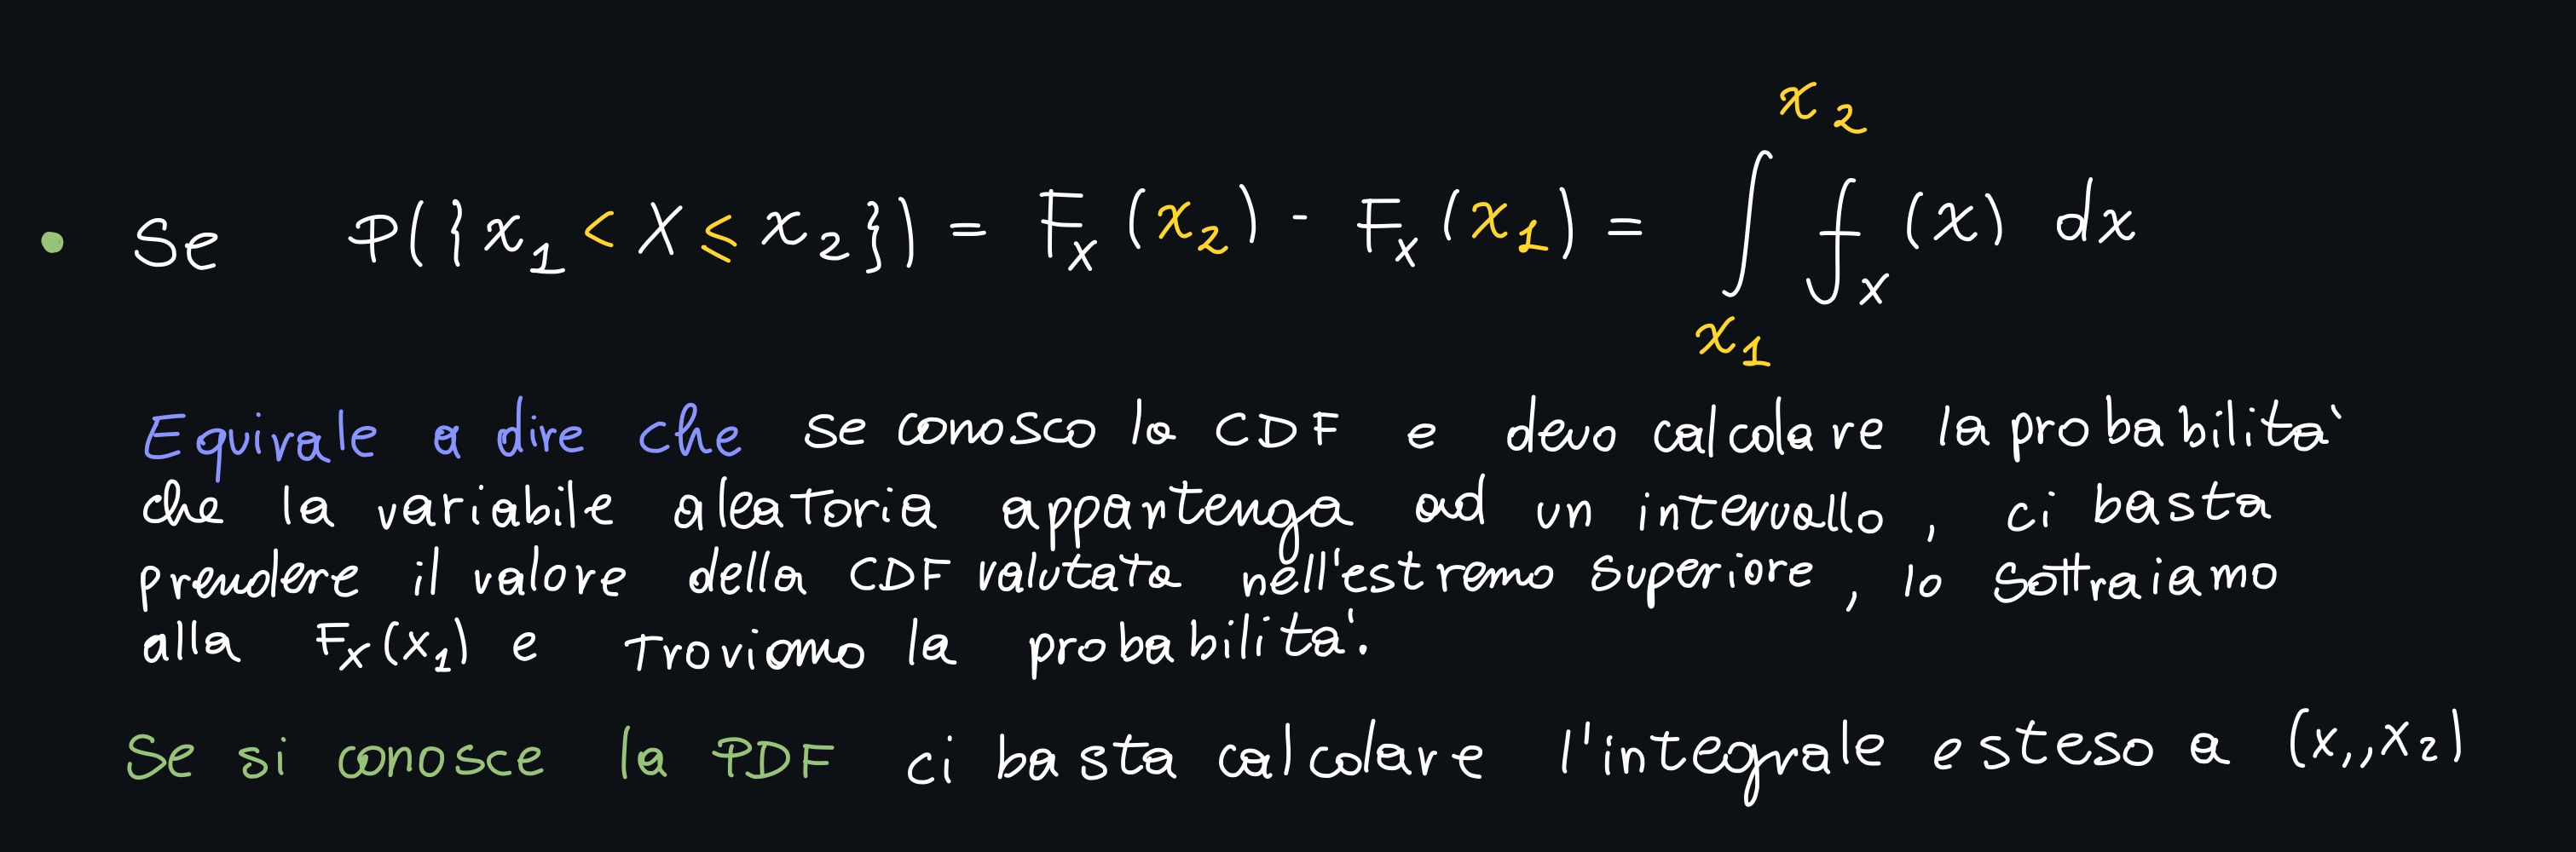 • Se P({x₁ < X ≤ x₂}) = Fₓ(x₂) - Fₓ(x₁) = ∫_{x₁}^{x₂} fₓ(x) dx
Equivale a dire che se conosco la CDF e devo calcolare la probabilita'
che la variabile aleatoria appartenga ad un intervallo, ci basta
prendere il valore della CDF valutata nell'estremo superiore, lo sottraiamo
alla Fₓ(x₁) e troviamo la probabilita'.
Se si conosce la PDF ci basta calcolare l'integrale esteso a (x₁,x₂)